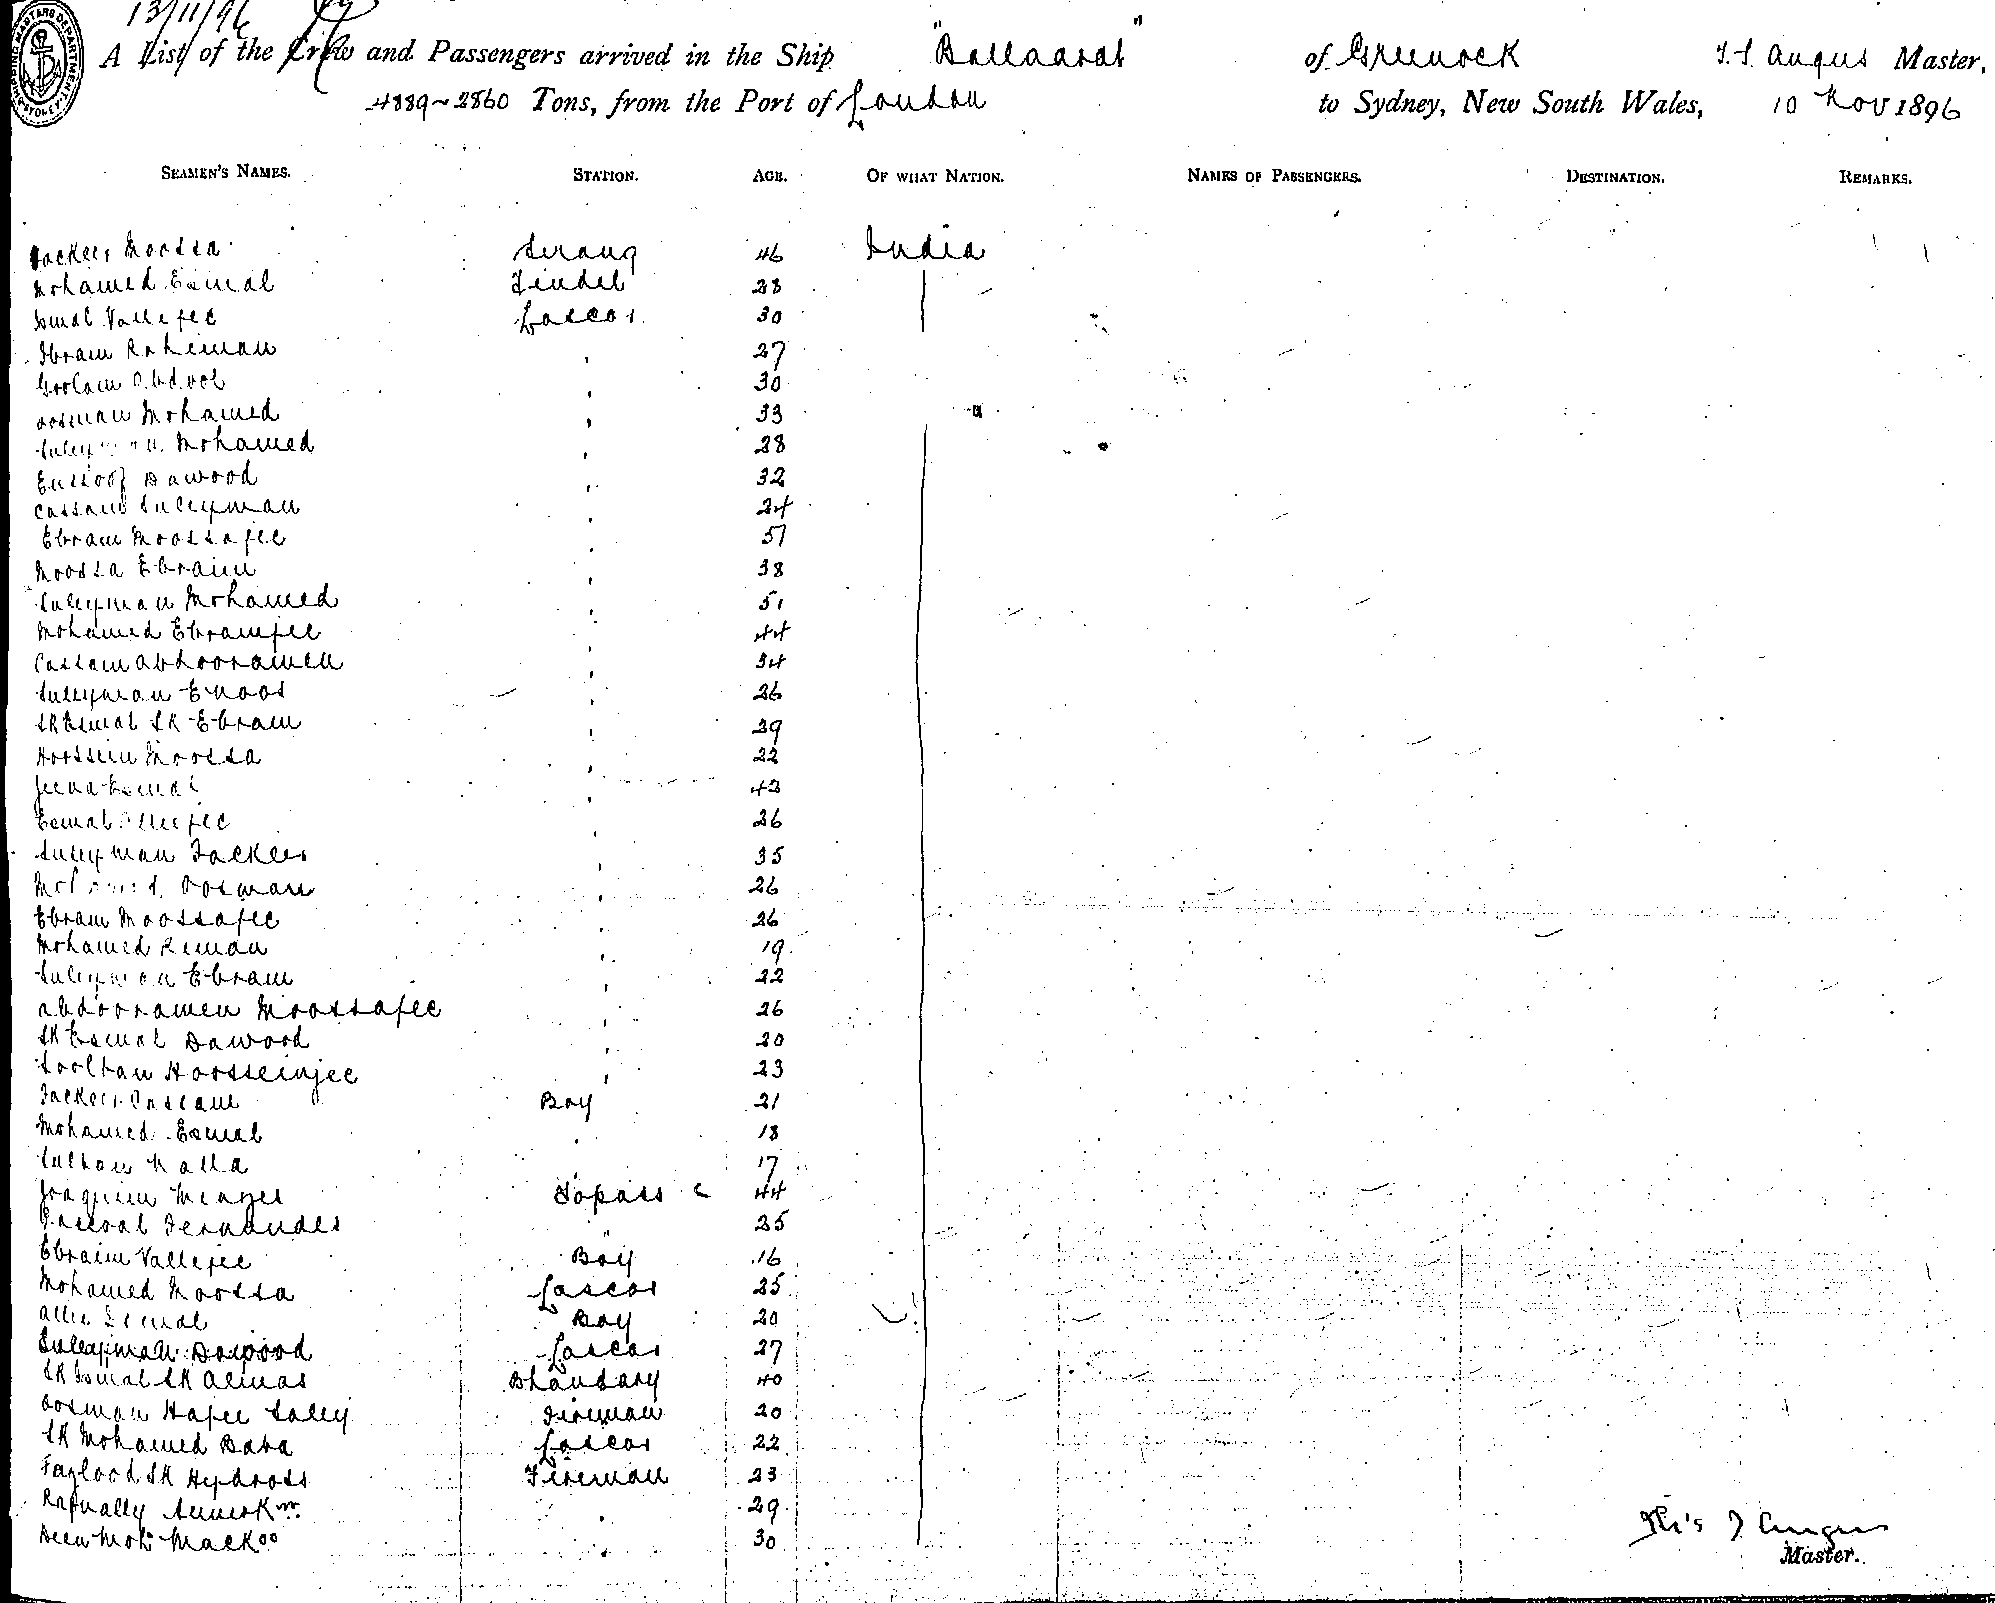 13/11/96
A List of the Crew and Passengers arrived in the Ship "Ballaarat" of Greenock T. S. Angus Master,
4889 ~ 2860 Tons, from the Port of London to Sydney, New South Wales, 10 Nov 1896
SEAMEN'S NAMES. STATION. AGE. OF WHAT NATION. NAMES OF PASSENGERS. DESTINATION. REMARKS.
Moossa Serang 46 India
Mohamed Esmal Tindel 28
Vallejee Lascar 30
Ebram Rohiman 27
Goolam Abdool 30
Oosman Mohamed 33
Suleyman Mohamed 28
Eussoof Dawood 32
Cassam Suleyman 24
Ebram Moossajee 51
Moossa Ebraim 38
Suleyman Mohamed 51
Mohamed Ebramjee 44
Cassam Abdooramen 34
Suleyman Enoos 26
SK Esmal SK Ebram 29
Hoossein Moossa 22
Esmal 42
Esmal 26
Suleyman Fackeer 35
Oosman 26
Ebram Moossajee 26
Mohamed Reman 19
Suleyman Ebram 22
Abdooramen Moossajee 26
SK Esmal Dawood 20
Sooltan Hoosseinjee 23
Fackeer Cassam Boy 21
Mohamed Esmal 18
Sultan 17
Joaquim Topass 44
Fernandes 25
Ebraim Vallejee Boy 16
Mohamed Moossa Lascar 25
Allee Esmal Boy 20
Suleyman Dawood Lascar 27
SK Esmal SK Almas Bhandary 40
Oosman Hajee Saley Fireman 20
SK Mohamed Baba Lascar 22
SK Hydross Fireman 23
29
Deen Moh: 30
Angus
Master.